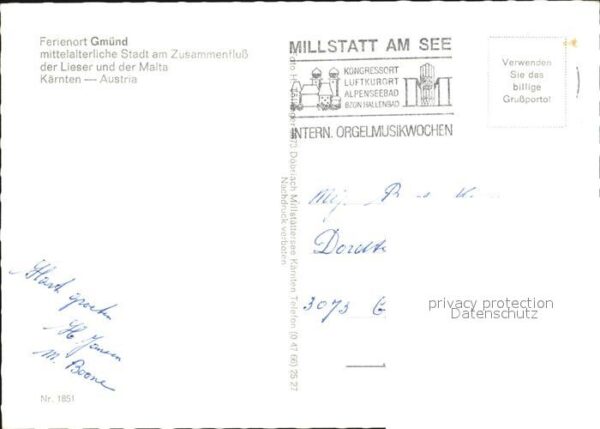 Ferienort Gmünd
mittelalterliche Stadt am Zusammenfluß
der Lieser und der Malta
Kärnten — Austria
MILLSTATT AM SEE
KONGRESSORT
LUFTKURORT
ALPENSEEBAD
BZGN HALLENBAD
INTERN. ORGELMUSIKWOCHEN
Verwenden
Sie das
billige
Grußporto!
Döbriach Millstättersee Kärnten Telefon (0 47 66) 25 27
Nachdruck verboten
Dordt
3073 G
privacy protection
Datenschutz
H. Jansen
M. Boone
Nr. 1851